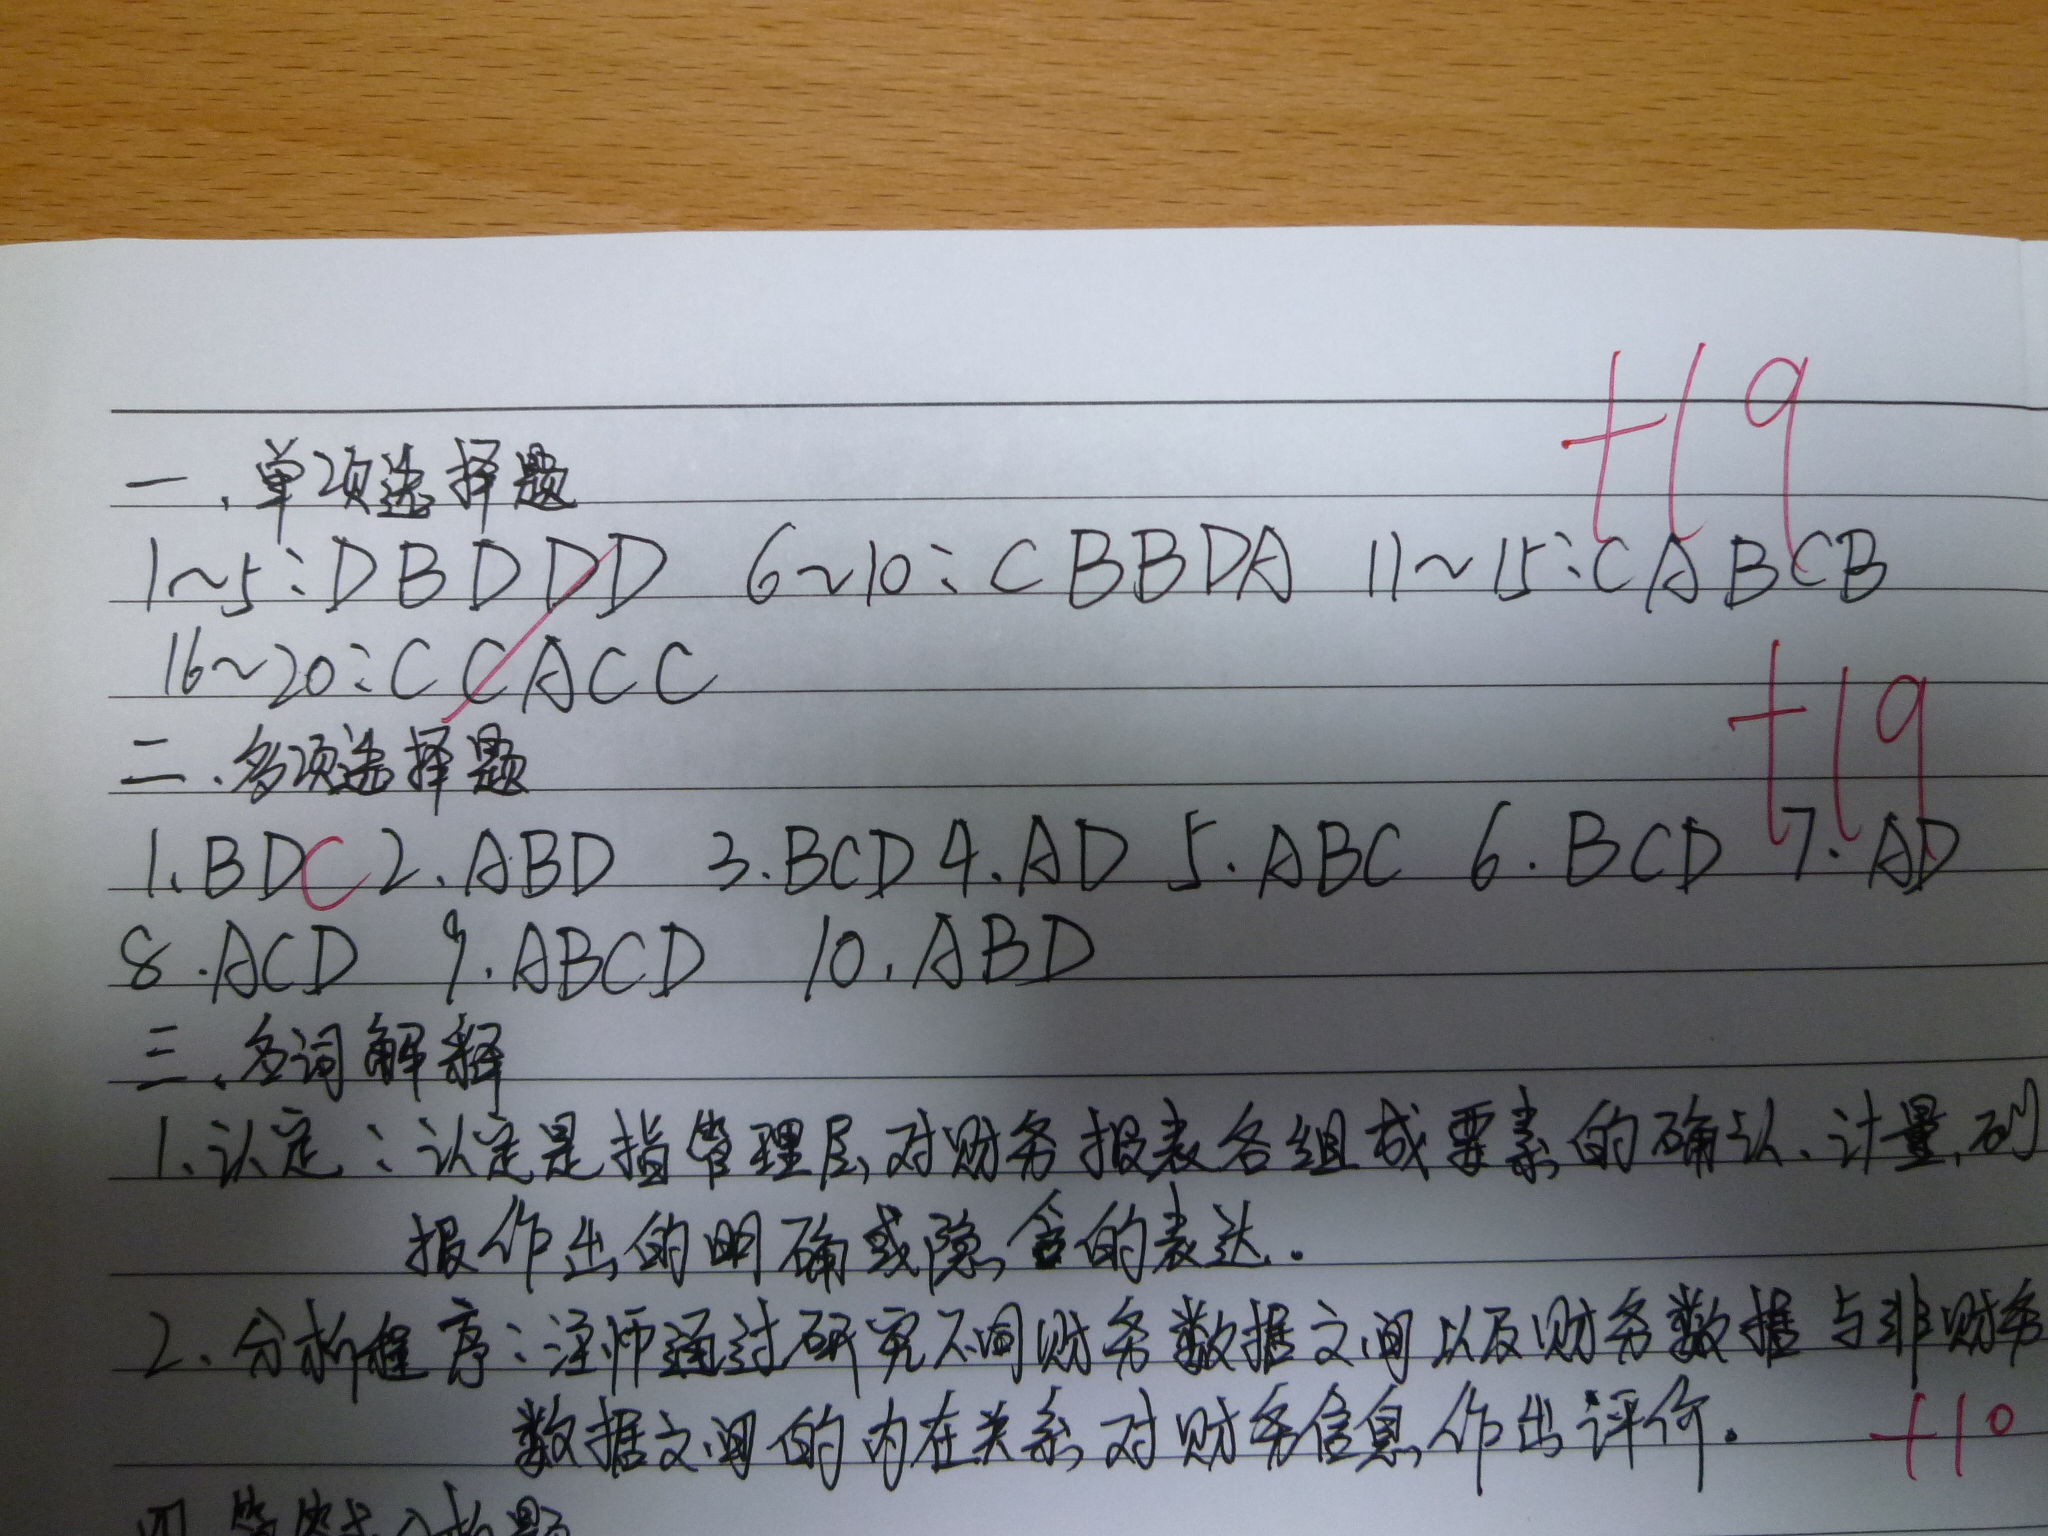 +19
一、单项选择题
1~5:DBDDD 6~10:CBBDA 11~15:CABCB
16~20:CCACC
+19
二、多项选择题
1.BDC 2.ABD 3.BCD 4.AD 5.ABC 6.BCD 7.AD
8.ACD 9.ABCD 10.ABD
三、名词解释
1.认定:认定是指管理层对财务报表各组成要素的确认、计量、列
报作出的明确或隐含的表达.
2.分析程序:注师通过研究不同财务数据之间以及财务数据与非财务
数据之间的内在关系对财务信息作出评价. +10
四